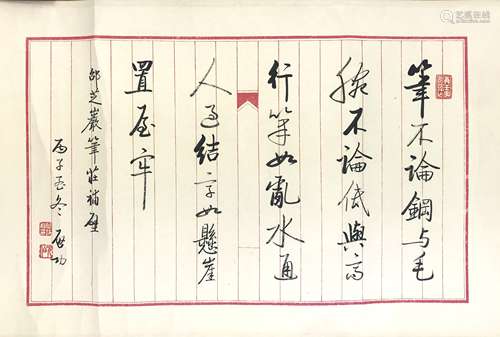 筆不論鋼与毛
腕不論低與高
行筆如亂水通
人过結字如懸崖
置屋牢
邵芝巖筆莊補壁
丙子孟冬 启功